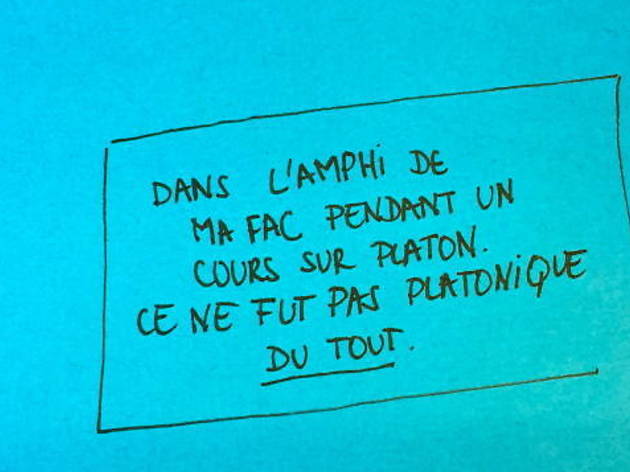 DANS L'AMPHI DE
MA FAC PENDANT UN
COURS SUR PLATON.
CE NE FUT PAS PLATONIQUE
DU TOUT.